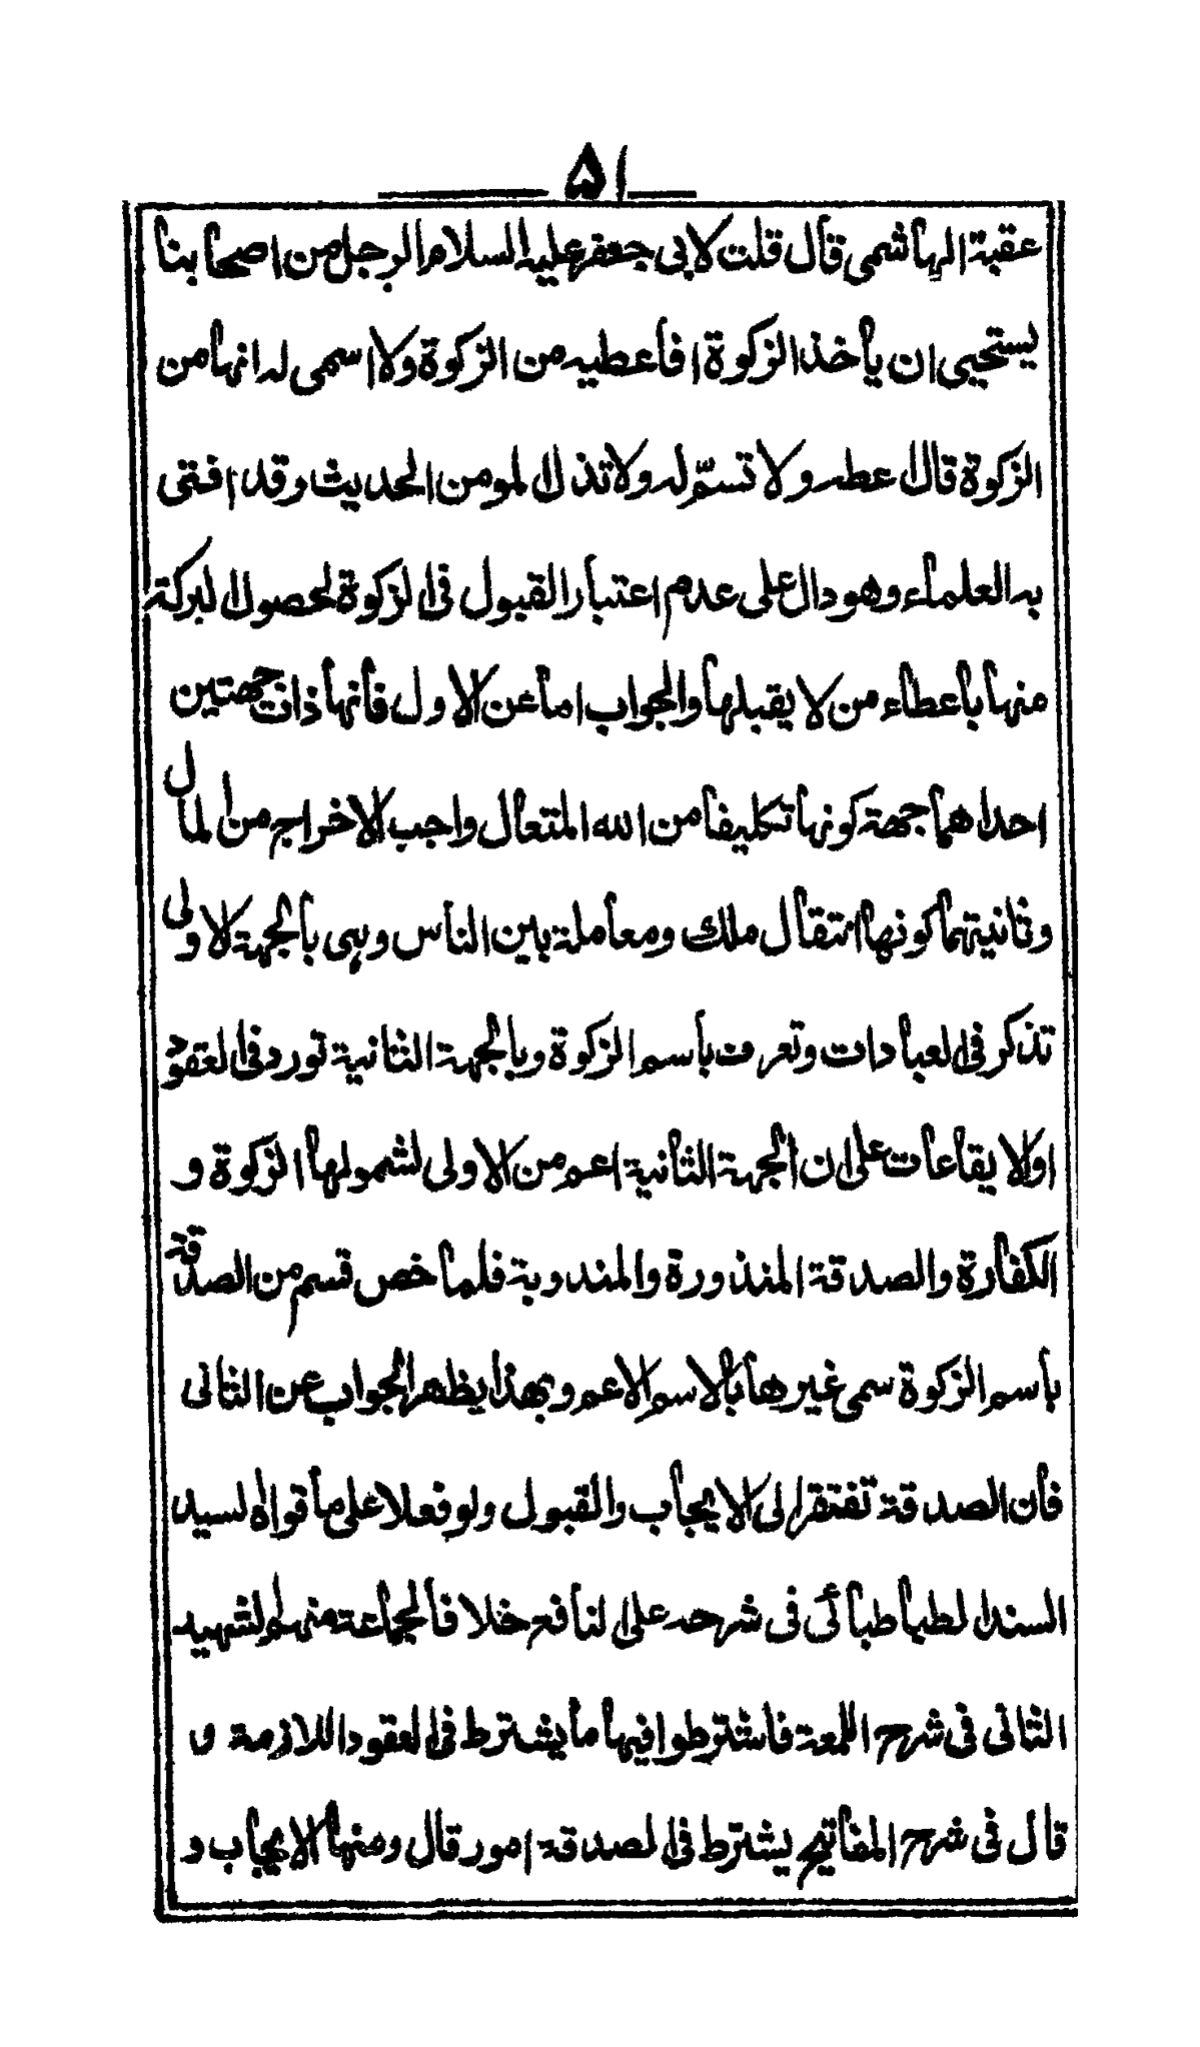 ۵۱
عقبة الهاشمى قال قلت لابى جعفر عليه السلام الرجل من اصحابنا
يستحيى ان يأخذ الزكوة افاعطيه من الزكوة ولا اسمى له انها من
الزكوة قال اعطه ولا تسمّ له ولا تذل المومن الحديث وقد افتى
به العلماء وهو دال على عدم اعتبار القبول فى الزكوة لحصول البركة
منها باعطاء من لا يقبلها والجواب اما عن الاول فانها ذات جهتين
احداهما جهة كونها تكليفا من الله المتعال واجب الاخراج من المال
وثانيتهما كونها انتقال ملك ومعاملة بين الناس وهى بالجهة الاولى
تذكر فى العبادات وتعرف باسم الزكوة وبالجهة الثانية تورد فى العقود
اولا يقاعات على ان الجهة الثانية اعم من الاولى لشمولها الزكوة و
الكفارة والصدقة المنذورة والمندوبة فلما خص قسم من الصدقة
باسم الزكوة سمى غيرها بالاسم الاعم وبهذا يظهر الجواب عن الثانى
فان الصدقة تفتقر الى الايجاب والقبول ولو فعلا على ما قواه السيد
السند الطباطبائى فى شرحه على النافع خلافا لجماعة منهم الشهيد
الثانى فى شرح اللمعة فاشترطوا فيها ما يشترط فى العقود اللازمة و
قال فى شرح المفاتيح يشترط فى الصدقة امور قال ومنها الايجاب و